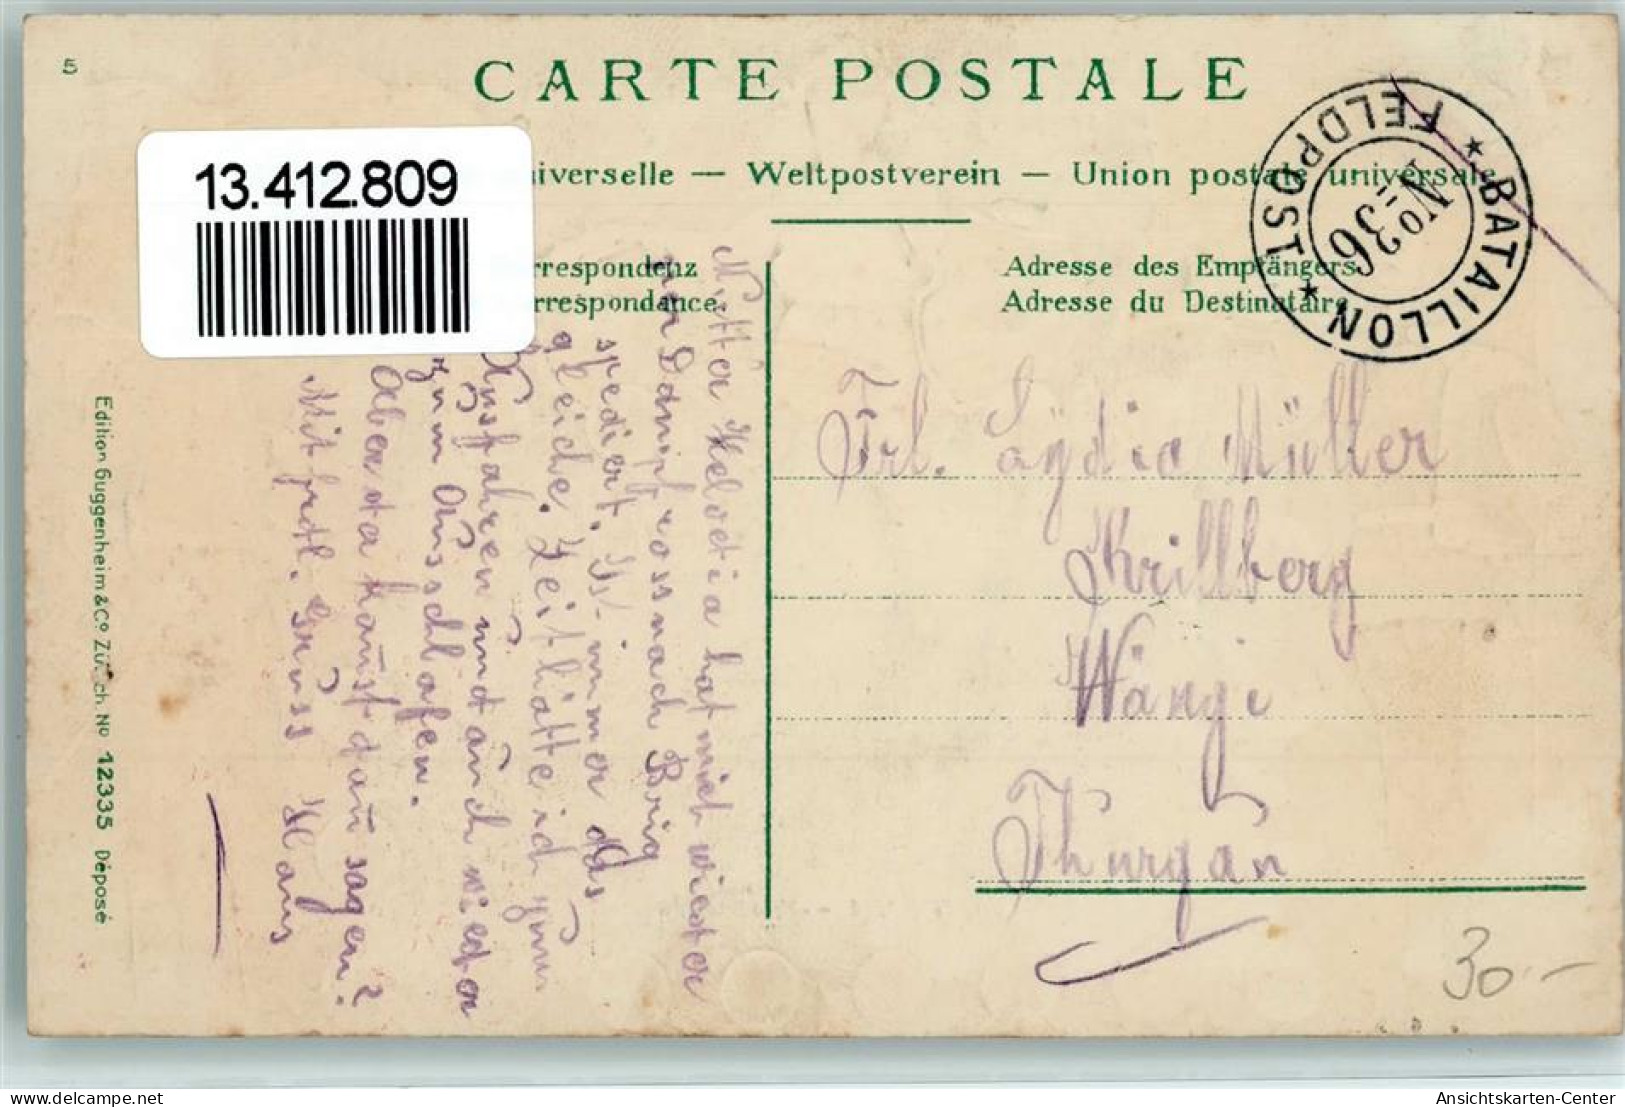 5
CARTE POSTALE
13.412.809
iverselle — Weltpostverein — Union postale universale
rrespondenz
rrespondance
Adresse des Empfängers
Adresse du Destinataire
BATAILLON
No 36
FELDPOST
Frl. Lÿdia Müller
Krillberg
Wängi
Thurgau
Mutter Helvetia hat mich wieder
Dampfross nach Brig
spediert. Ist immer das
gleiche. Zeit hätte ich zum
Ausfahren und auch wieder
zum Ausschlafen.
Aber da kannst du sagen?
Mit frdl. Grüss Hans
Edition Guggenheim & Co. Zürich. No 12335 Déposé
30.-
delcampe.net
Ansichtskarten-Center